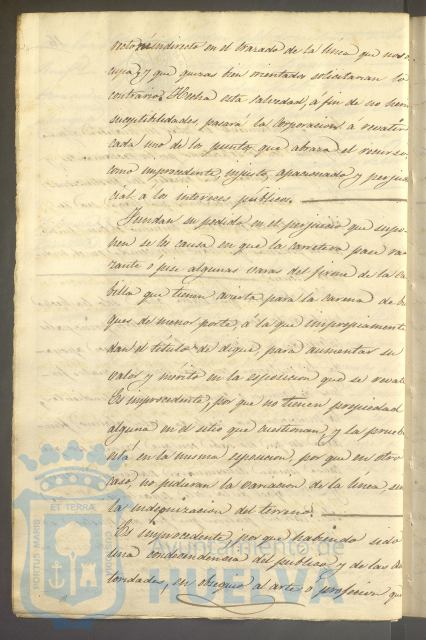 recto ni indirecto en el trazado de la linea que nos o
cupa, y que quizas bien orientados solicitarian lo
contrario. Hecha esta salvedad, á fin de no herir
suceptibilidades pasará la Corporacion á revatir
cada uno de los puntos que abraza el recurso
como improcedente, injusto, apacionado y perju
cial á los intereses públicos.
Fundan su pedido en el perjuicio que supo-
nen se les causa en que la carretera pase ra
zante ó pise algunas varas del firme de la Ca
billa que tienen avierta para la carena de bu
ques de menor porte, á la que impropiament
dan el titulo de dique, para aumentar su
valor y mérito en la esposicion que se revate.
Es improcedente, por que no tienen propiedad
alguna en el sitio que cuestionan, y la prueb
está en la misma esposicion, por que en otro
caso, no pidieran la variacion de la linea sin
la indegnizacion del terreno.
Es improcedente, por que habiendo sido
una condecendencia del publico y de las Au
toridades, en obsequio al arte ó profesion que
PORTUS MARIS ET TERRAE CUSTODIA
Ayuntamiento de
HUELVA